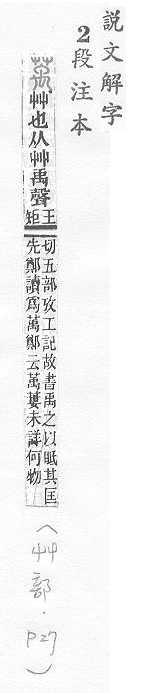 說文解字
2段注本
萭
艸也从艸禹聲
王
矩
切五部攷工記故書禹之以眡其匡
先鄭讀爲萬鄭云萬蔞未詳何物
(艸部．P27)